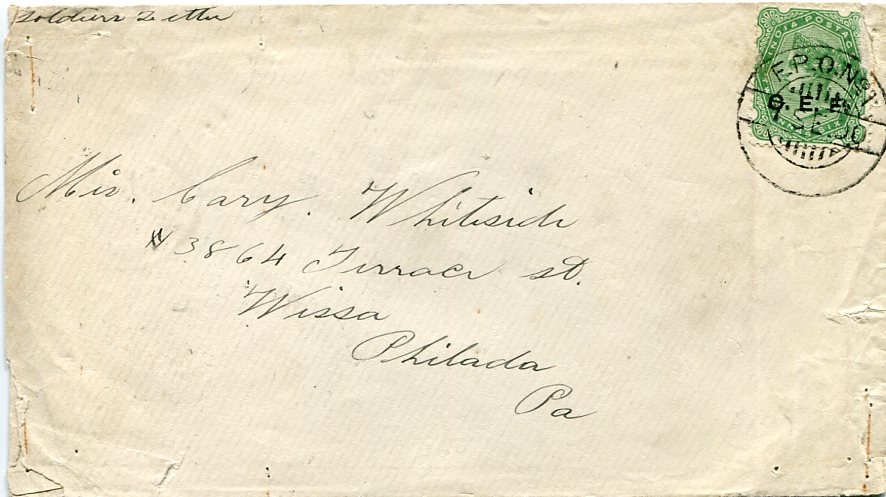 Soldiers Letter
INDIA POSTAGE
F.P.O. No 1
C. E. F.
Mrs. Cary. Whiteside
# 3864 Terrace St.
Wissa
Philada
Pa